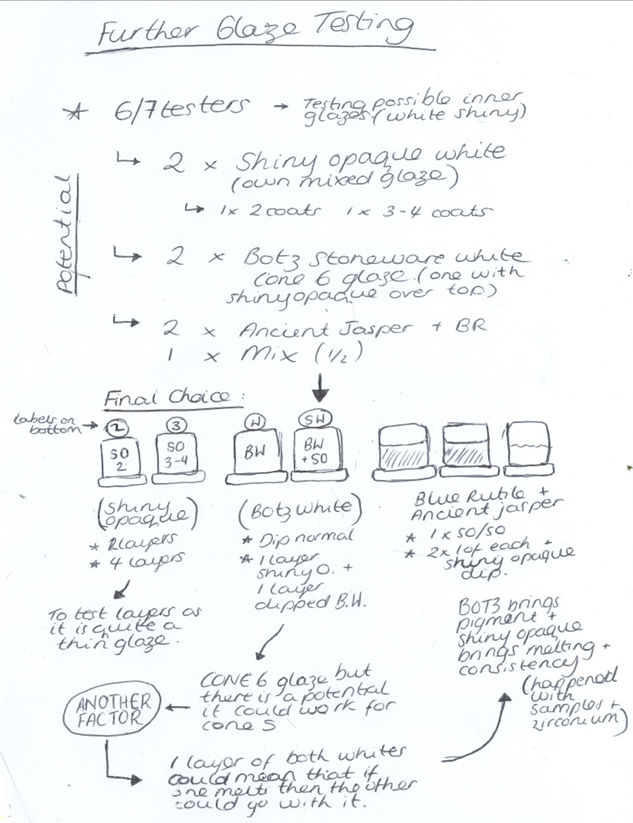 Further Glaze Testing
* 6/7 testers → Testing possible inner
glazes (white shiny)
Potential
↳ 2 x Shiny opaque white
(own mixed glaze)
↳ 1x 2 coats 1 x 3-4 coats
↳ 2 x Botz Stoneware white
cone 6 glaze (one with
shiny opaque over top)
↳ 2 x Ancient Jasper + BR
1 x Mix (1/2)
Final Choice:
labels on
bottom →
2 3 W SW
SO
2
SO
3-4
BW
BW
+ SO
(Shiny
opaque)
* 2 layers
* 4 layers
To test layers as
it is quite a
thin glaze.
(Botz White)
* Dip normal
* 1 layer
shiny O. +
1 layer
dipped B.W.
Blue Ruble +
Ancient jasper
* 1 x 50/50
* 2x 1 of each +
shiny opaque
dip.
CONE 6 glaze but
there is a potential
it could work for
cone 5
ANOTHER
FACTOR
1 layer of both whites
could mean that if
one melts then the other
could go with it.
BOTZ brings
pigment +
shiny opaque
brings melting +
consistency
(happened
with
samples +
zirconium)